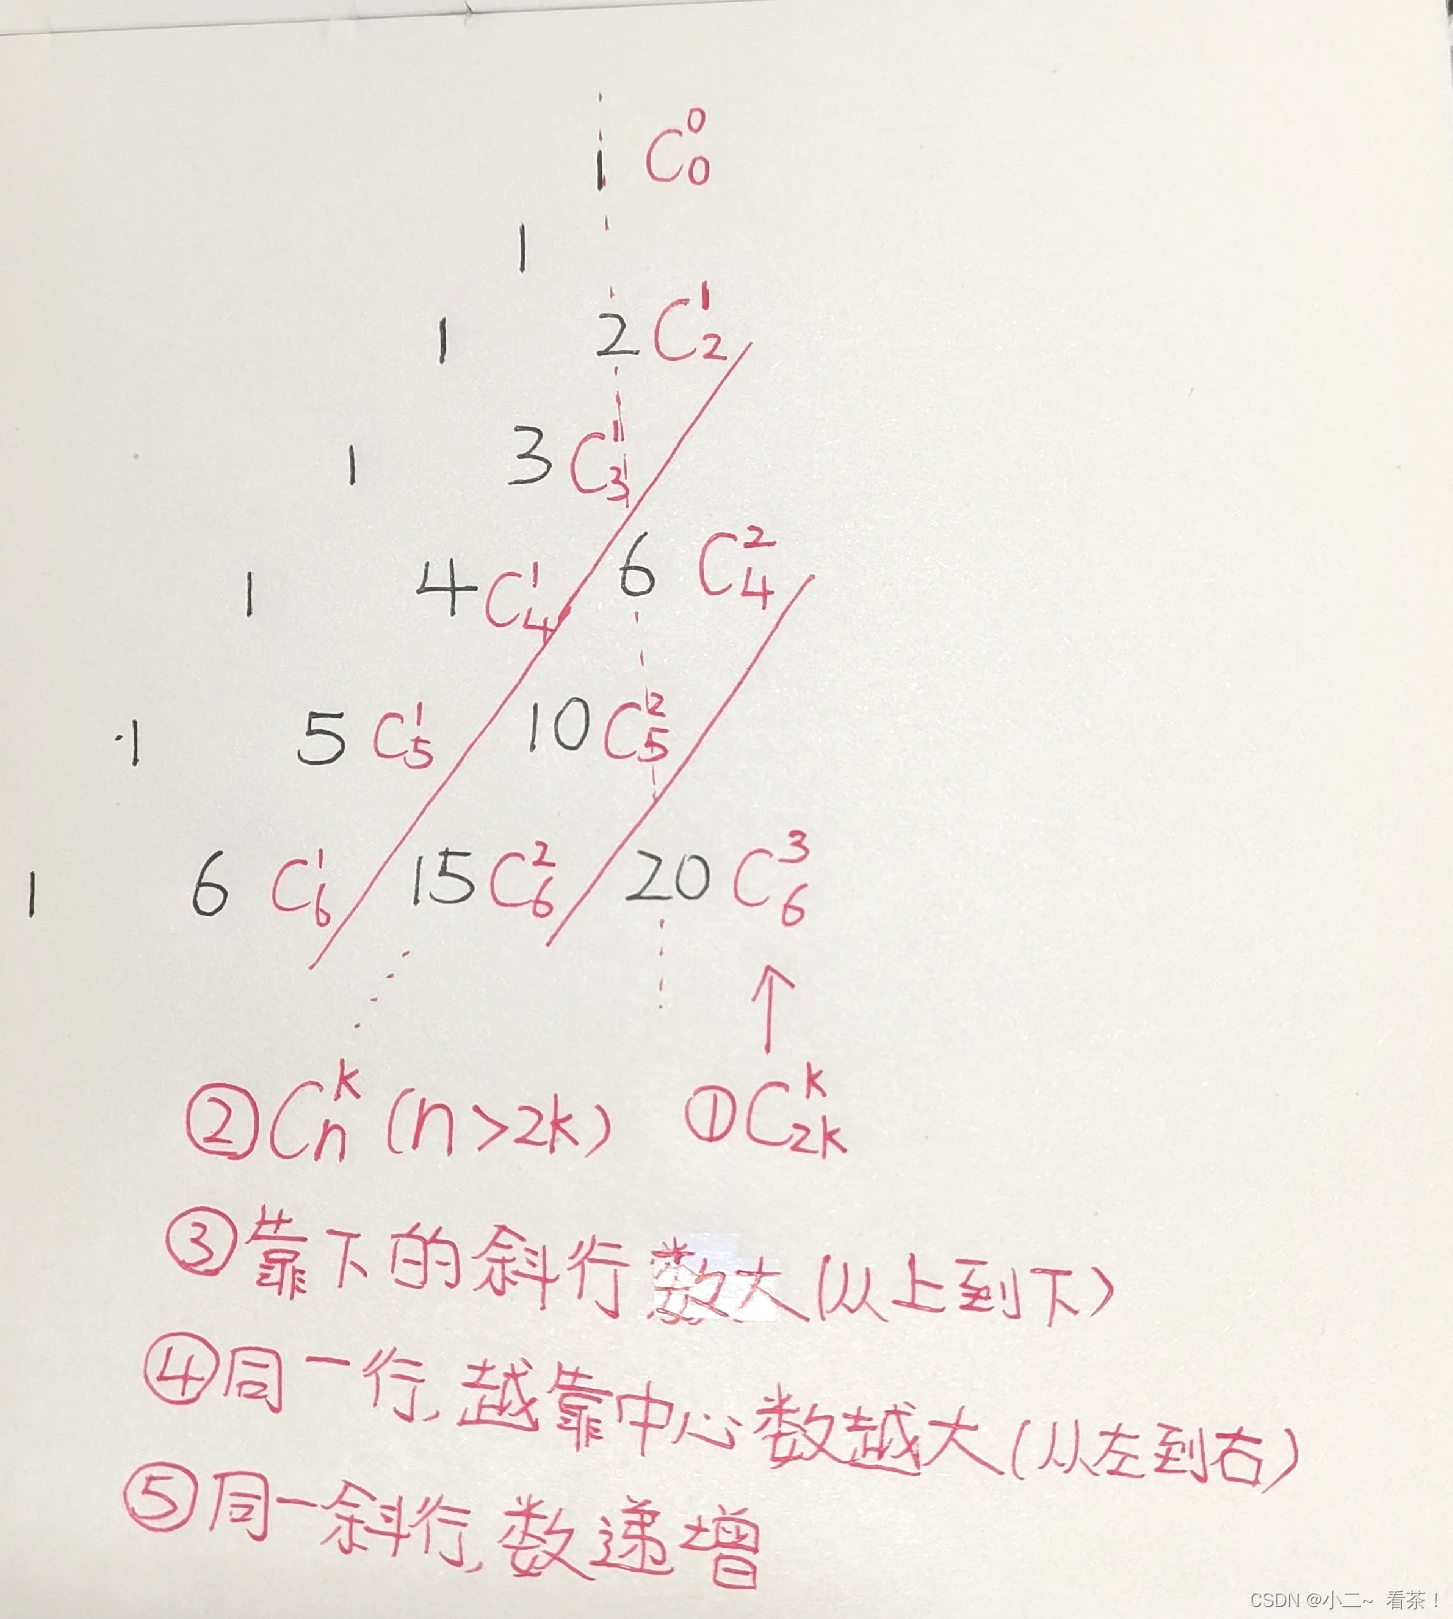 1 C₀⁰
1
1 2 C₂¹
1 3 C₃¹
1 4 C₄¹ 6 C₄²
1 5 C₅¹ 10 C₅²
1 6 C₆¹ 15 C₆² 20 C₆³
②Cₙᵏ (n>2k) ①C₂ₖᵏ
③靠下的斜行数大(从上到下)
④同一行,越靠中心数越大(从左到右)
⑤同一斜行,数递增
CSDN @小二~ 看茶!